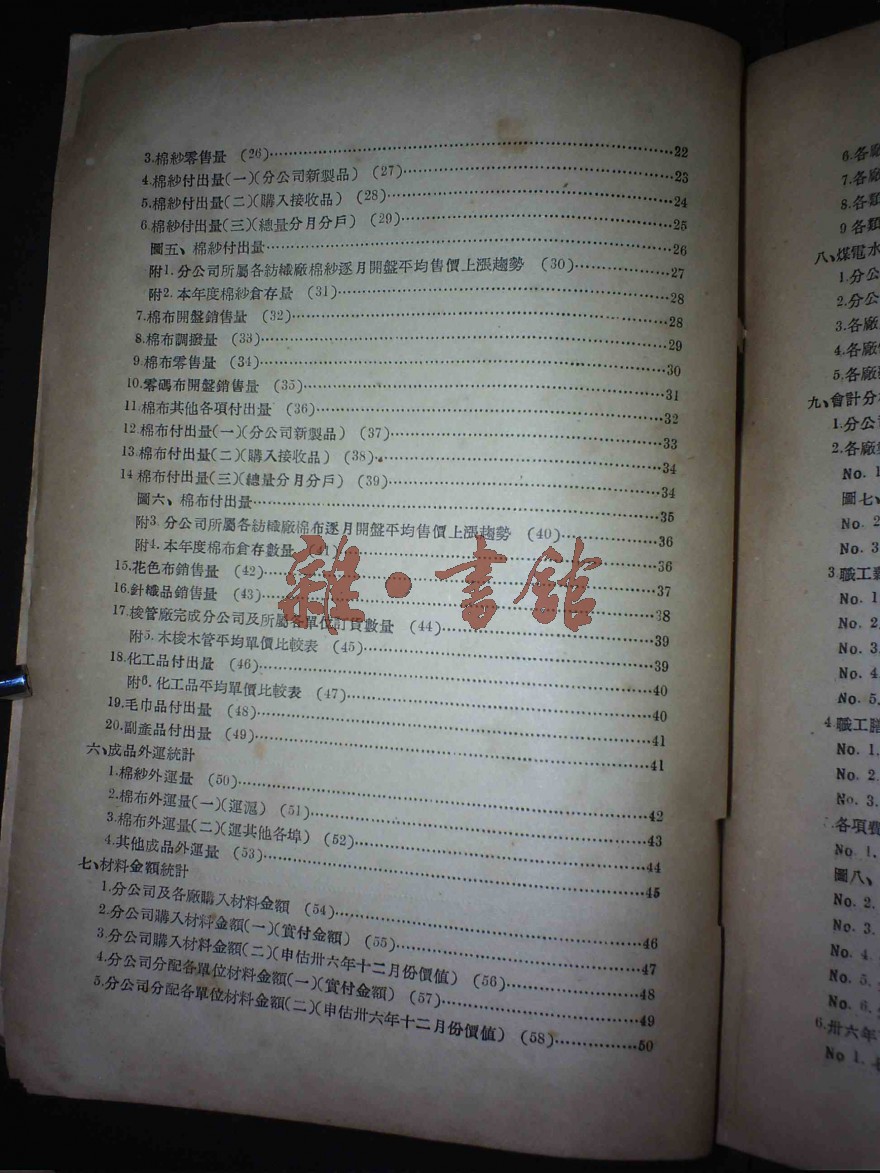 3.棉紗零售量 (26)……22
4.棉紗付出量(一)(分公司新製品) (27)……23
5.棉紗付出量(二)(購入接收品) (28)……24
6.棉紗付出量(三)(總量分月分戶) (29)……25
圖五、棉紗付出量……26
附1.分公司所屬各紡織廠棉紗逐月開盤平均售價上漲趨勢 (30)……27
附2.本年度棉紗倉存量 (31)……28
7.棉布開盤銷售量 (32)……28
8.棉布調撥量 (33)……29
9.棉布零售量 (34)……30
10.零碼布開盤銷售量 (35)……31
11.棉布其他各項付出量 (36)……32
12.棉布付出量(一)(分公司新製品) (37)……33
13.棉布付出量(二)(購入接收品) (38)……34
14棉布付出量(三)(總量分月分戶) (39)……34
圖六、棉布付出量……35
附3.分公司所屬各紡織廠棉布逐月開盤平均售價上漲趨勢 (40)……36
附4.本年度棉布倉存數量 (41)……36
15.花色布銷售量 (42)……37
16.針織品銷售量 (43)……38
17.梭管廠完成分公司及所屬各單位訂貨數量 (44)……39
附5.木梭木管平均單價比較表 (45)……39
18.化工品付出量 (46)……40
附6.化工品平均單價比較表 (47)……40
19.毛巾品付出量 (48)……41
20.副產品付出量 (49)……41
六、成品外運統計
1.棉紗外運量 (50)……42
2.棉布外運量(一)(運滬) (51)……43
3.棉布外運量(二)(運其他各埠) (52)……44
4.其他成品外運量 (53)……45
七、材料金額統計
1.分公司及各廠購入材料金額 (54)……46
2.分公司購入材料金額(一)(實付金額) (55)……47
3.分公司購入材料金額(二)(申估卅六年十二月份價值) (56)……48
4.分公司分配各單位材料金額(一)(實付金額) (57)……49
5.分公司分配各單位材料金額(二)(申估卅六年十二月份價值) (58)……50
雜·書館
6.各廠
7.各廠
8.各類
9各類
八、煤電水
1.分公
2.分公
3.各廠
4.各廠
5.各廠
九、會計分
1.分公
2.各廠
No. 1
圖七、
No. 2
No. 3
3.職工
No. 1
No. 2.
No. 3.
No. 4
No. 5.
4.職工膳
No. 1.
No. 2.
No. 3.
各項費
No. 1.
圖八、
No. 2.
No. 3.
No. 4.
No. 5.
No. 6.
6.卅六年
No 1.